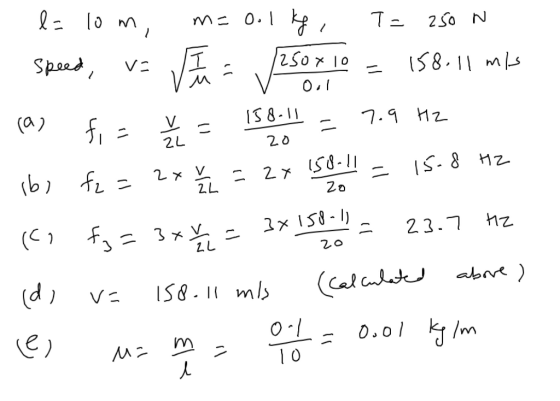 l = 10 m, m = 0.1 kg, T = 250 N
Speed, v = √(T/μ) = √(250 × 10 / 0.1) = 158.11 m/s
(a) f₁ = v/2L = 158.11/20 = 7.9 Hz
(b) f₂ = 2 × v/2L = 2 × 158.11/20 = 15.8 Hz
(c) f₃ = 3 × v/2L = 3 × 158.11/20 = 23.7 Hz
(d) v = 158.11 m/s (calculated above)
(e) μ = m/l = 0.1/10 = 0.01 kg/m